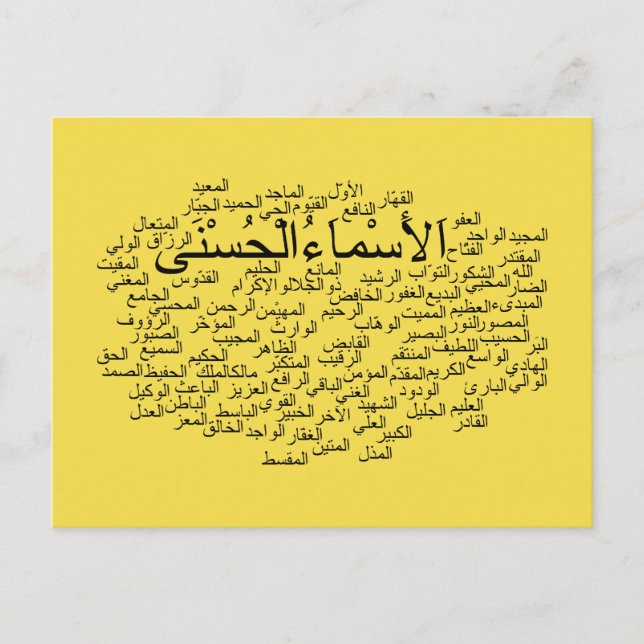 المعيد
الماجد
الأوّل
القهّار
الجبّار
الحميد
الحي
القيّوم
النافع
العفو
المتعال
الرزّاق
الولي
اَلأَسْمَاءُالْحُسْنَى
الفتّاح
المجيد الواجد
المقتدر
المقيت
المغني
القدّوس
الحليم
المانع
ذوالجلالوالإكرام
الرشيد
التوّاب
الشكور
المحيي
الله
الضار
الجامع
المحسي
الرحمن
المهيْمن
الرحيم
الخافض
الغفور
البديع
المميت
العظيم
المبدىء
الرؤوف
المؤخّر
الوارث
الوهّاب
البصير
النور
المصور
الصبور
المجيب
القابض
السميع
الحكيم
الظاهر
المتكبّر
الرقيب
المنتقم
اللطيف
الحسيب
البَر
الحق
الصمد
الحفيظ
مالكالملك
الرافع
الباقي
المؤمن
المقدّم
الكريم
الواسع
الهادي
الوالي
الوكيل
الباعث
العزيز
القوي
الغني
الشهيد
الودود
البارئ
العدل
الباطن
الباسط
الخبير
الآخر
الجليل
العليم
المعز
الخالق
الواجد
الغفار
العلي
الكبير
القادر
المتين
المذل
المقسط